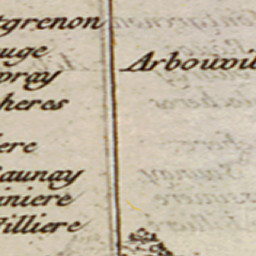 tgrenon
uge
pray
heres
ere
aunay
iniere
illiere
Arbouvil